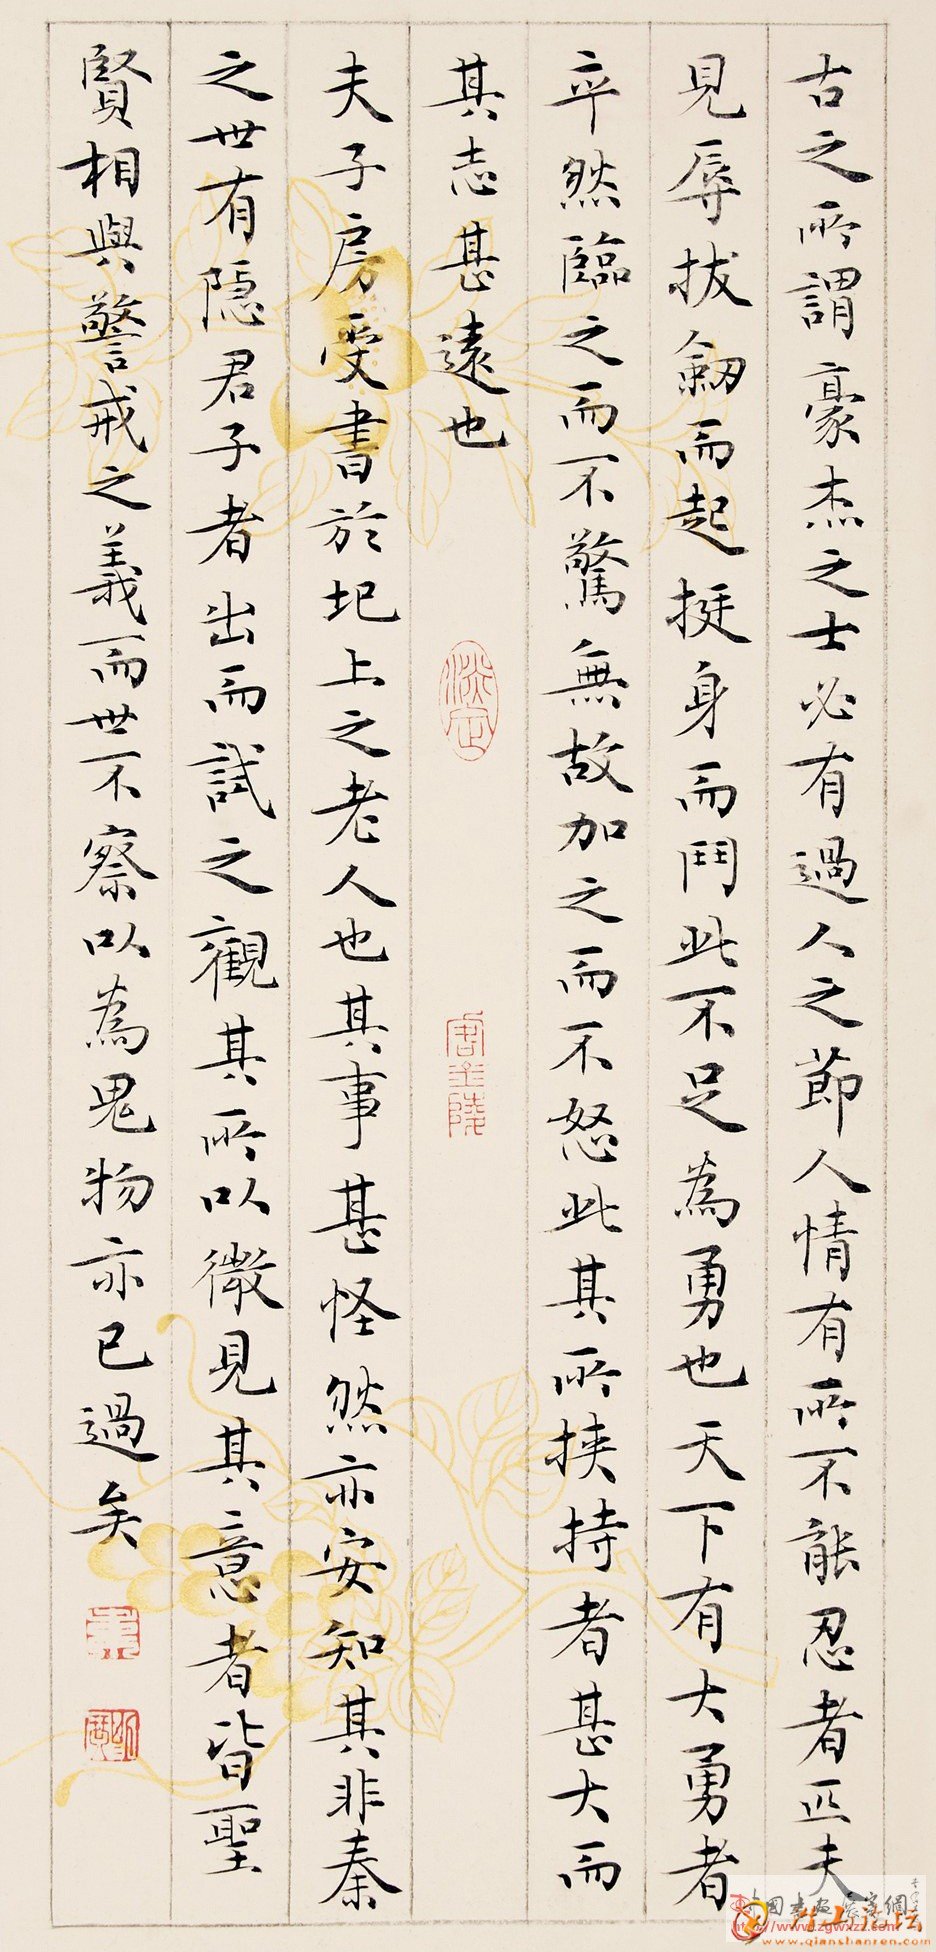 古之所謂豪杰之士必有過人之節人情有所不能忍者匹夫
見辱拔劒而起挺身而鬥此不足為勇也天下有大勇者
卒然臨之而不驚無故加之而不怒此其所挾持者甚大而
其志甚遠也
夫子房受書於圯上之老人也其事甚怪然亦安知其非秦
之世有隱君子者出而試之觀其所以微見其意者皆聖
賢相與警戒之義而世不察以為鬼物亦已過矣
http://www.zgwxzz.com
www.qianshanren.com